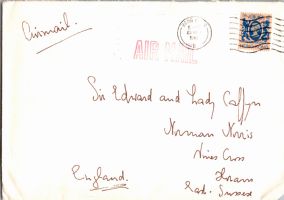 Airmail.
AIR MAIL
Sir Edward and Lady Caffyn
Norman Norris
Vines Cross
Horam
East Sussex
England.